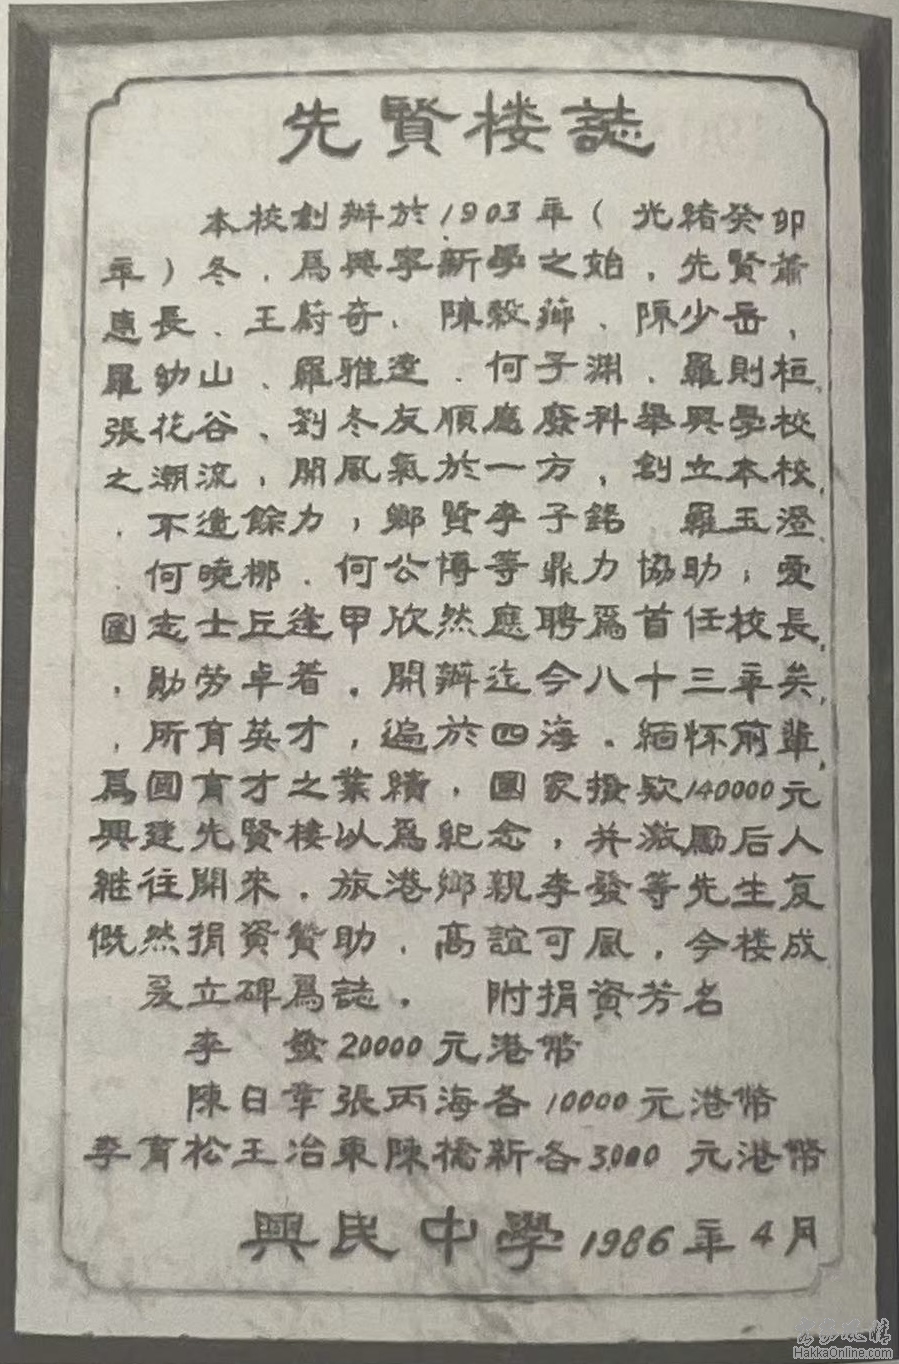 先賢楼誌
本校創辦於1903年（光緒癸卯
年）冬，爲興寧新學之始，先賢蕭
惠長、王蔚奇、陳穀薌、陳少岳、
羅幼山、羅雅達、何子淵、羅則桓、
張花谷、劉冬友順應廢科舉興學校
之潮流，開風氣於一方，創立本校，
不遺餘力，鄉賢李子銘 羅玉澄
、何曉柳、何公博等鼎力協助，愛
國志士丘逢甲欣然應聘爲首任校長，
勛劳卓着。開辦迄今八十三年矣，
所育英才，遍於四海。緬怀前輩
爲國育才之業績，國家撥欵140000元
興建先賢楼以爲紀念，并激勵后人
継往開來。旅港鄉親李發等先生复
慨然捐資贊助，高誼可風，今楼成
爰立碑爲誌。 附捐資芳名
李 發20000元港幣
陳日章張丙海各10000元港幣
李育松王冶東陳橋新各3000元港幣
興民中學1986年4月
HakkaOnline.com